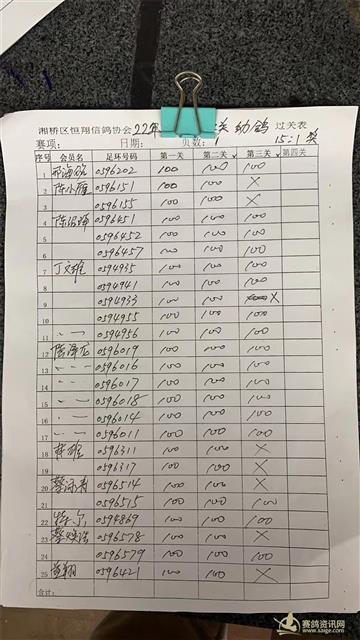 湘桥区恒翔信鸽协会22年 关 幼鸽 过关表
赛项: 日期: 页数: 1 15:1奖
序号 会员名 足环号码 第一关 第二关 第三关 第四关
1 0596202 100 100 100
2 陈小雁 0596151 100 100 X
3 0596155 100 100 X
4 0596451 100 100 100
5 0596452 100 100 100
6 0596457 100 100 100
7 丁文雄 0594935 100 100 100
8 0594941 100 100 100
9 0594933 100 100 X
10 0594955 100 100 100
11 0594956 100 100 100
12 陈泽龙 0596019 100 100 100
13 0596016 100 100 100
14 0596017 100 100 100
15 0596018 100 100 100
16 0596014 100 100 100
17 0596011 100 100 100
18 0596311 100 100 X
19 0596317 100 100 X
20 0596514 100 100 X
21 0596515 100 100 100
22 0594869 100 100 100
23 0596578 100 100 X
24 0596579 100 100 100
25 0596421 100 100 X
合计:
赛鸽资讯网
www.saige.com